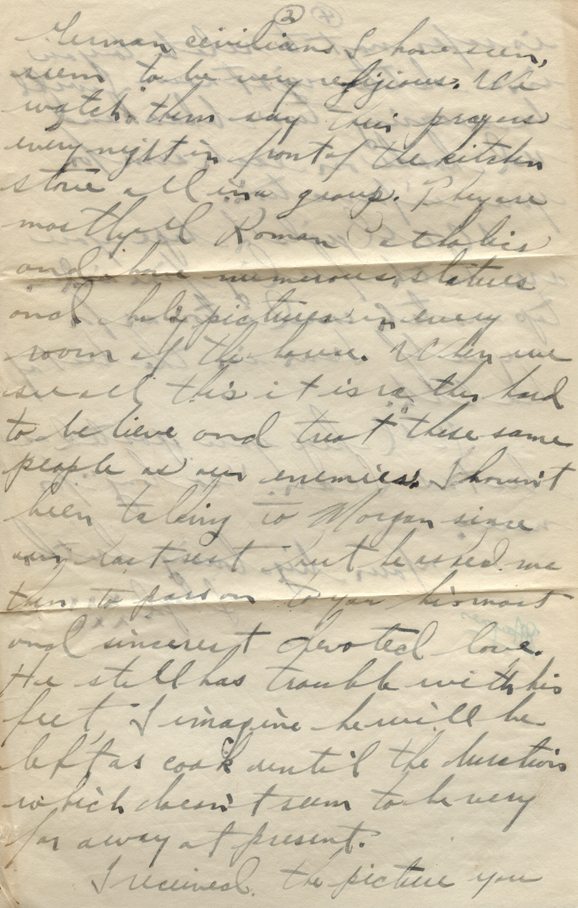 2
German civilians I have seen,
seem to be very religious. We
watch them say their prayers
every night in front of the kitchen
stove all in a group. They are
mostly all Roman Catholics
and have numerous statues
and holy pictures in every
room of the house. When we
see all this it is rather hard
to believe and treat these same
people as our enemies. I haven't
been talking to Morgan since
our last rest but he asked me
then to pass on to you his most
and sincerest devoted love.
He still has trouble with his
feet, I imagine he will be
left as cook until the duration
which doesn't seem to be very
far away at present.
I received the picture you